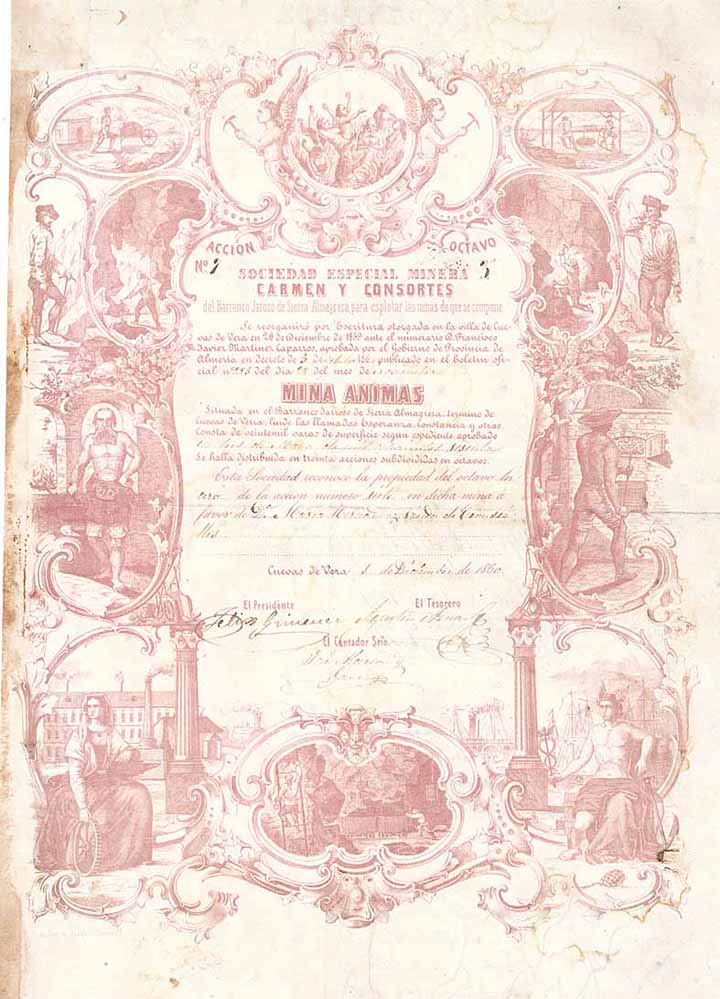 ACCION OCTAVO
Nº 7
SOCIEDAD ESPECIAL MINERA
CARMEN Y CONSORTES
del Barranco Jaroso de Sierra Almagrera, para esplotar las minas de que se compone
Se reorganizó por Escritura otorgada en la villa de Cue-
vas de Vera en 28 de Diciembre de 1859 ante el numerario D. Francisco
Javier Martinez Caparros, aprobada por el Gobierno de Provincia de
Almería en decreto de 3 de publicado en el boletin ofi-
cial nº del dia del mes de
MINA ANIMAS
Situada en el Barranco Jaroso de Sierra Almagrera, termino de
Cuevas de Vera, linde las llamadas Esperanza, Constancia y otras.
Consta de veintemil varas de superficie segun espediente aprobado
en de Mayo de mil
Se halla distribuida en treinta acciones subdivididas en octavos.
Esta Sociedad reconoce la propiedad del octavo ter
cero de la accion numero siete en dicha mina á
favor de Dª Maria
Cuevas de Vera de Diciembre de 1860
El Presidente El Tesorero
Felix Gimenez Agustin
El Contador Srio.